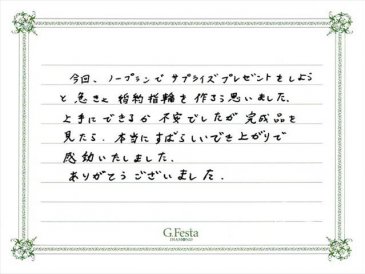 今回、ノープランでサプライズプレゼントをしよう
と急きょ婚約指輪を作ろう思いました。
上手にできるか不安でしたが完成品を
見たら、本当にすばらしいでき上がりで
感動いたしました。
ありがとうございました。
G.Festa
DIAMOND